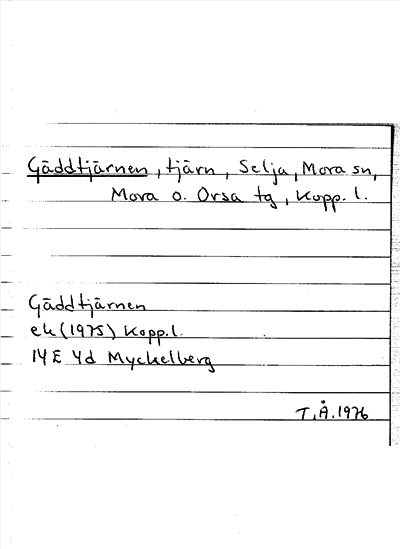 Gäddtjärnen, tjärn, Selja, Mora sn,
Mora o. Orsa tg, Kopp. l.
Gäddtjärnen
ek (1975) Kopp. l.
14E 4d Myckelberg
T.Å. 1976